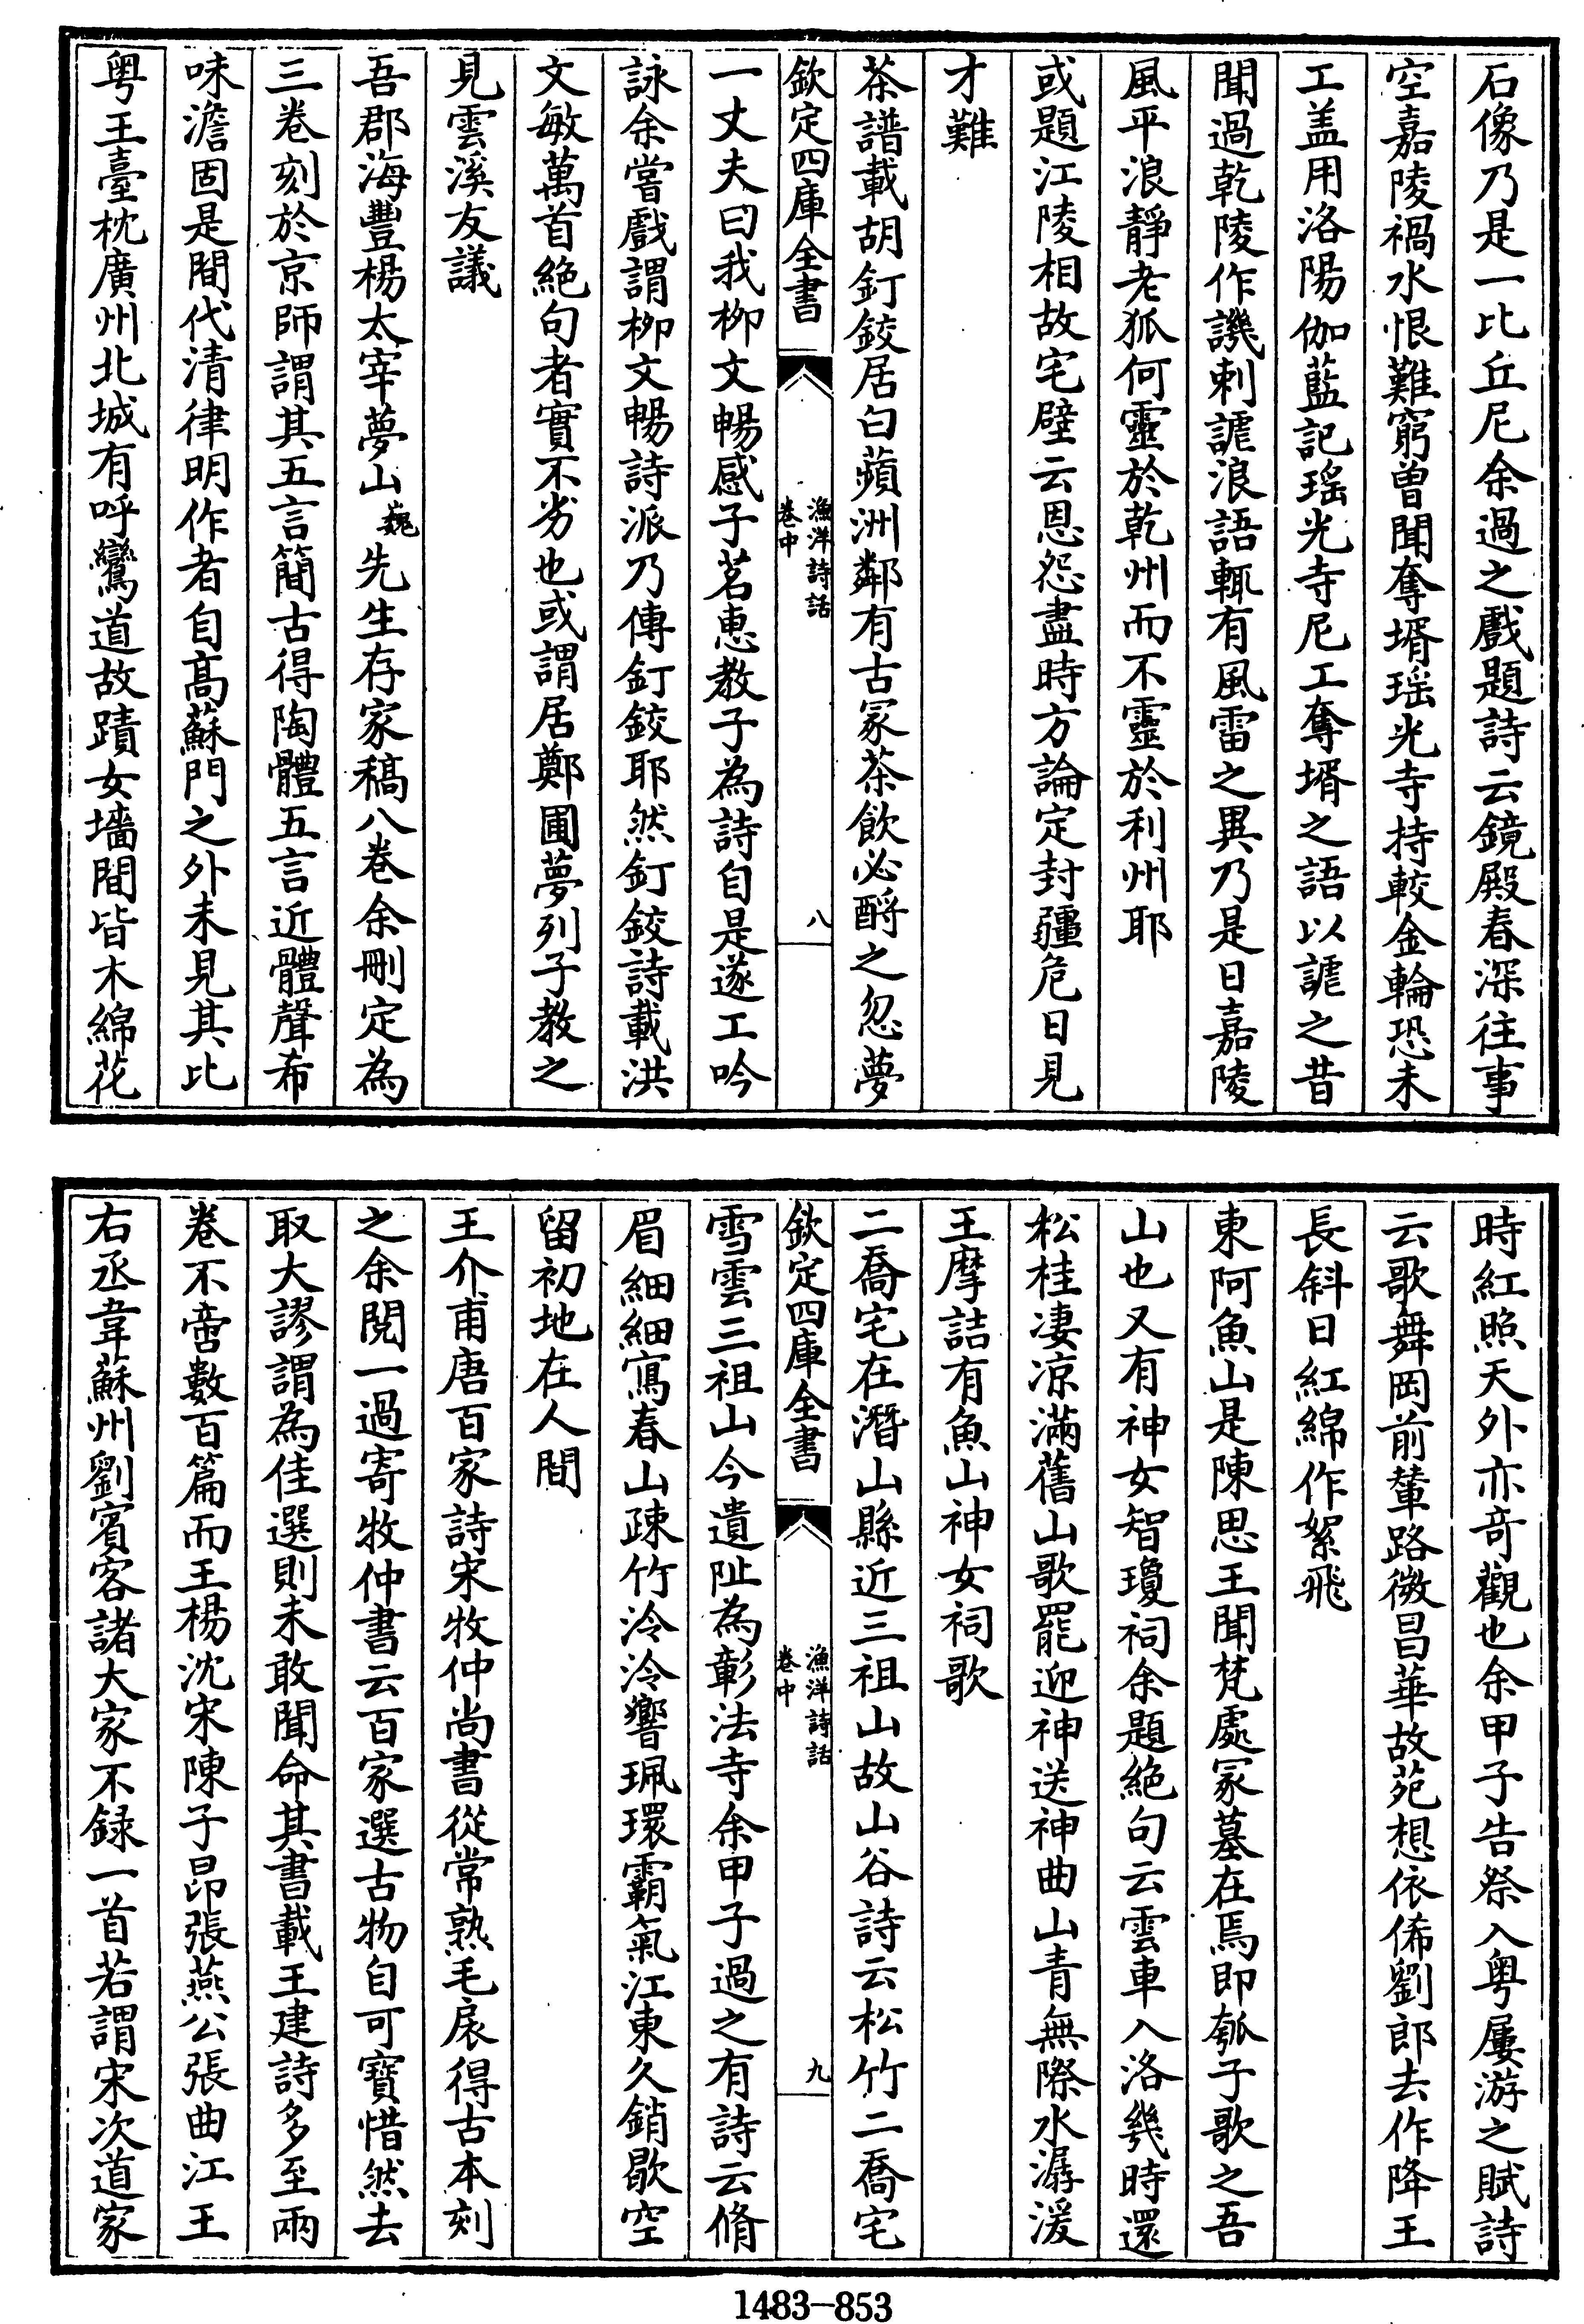 石像乃是一比丘尼余過之戲題詩云鏡殿春深往事
空嘉陵禍水恨難窮曾聞奪壻瑶光寺持較金輪恐未
工盖用洛陽伽藍記瑶光寺尼工奪壻之語以謔之昔
聞過乾陵作譏刺謔浪語輒有風雷之異乃是日嘉陵
風平浪靜老狐何靈於乾州而不靈於利州耶
或題江陵相故宅壁云恩怨盡時方論定封疆危日見
才難
茶譜載胡釘鉸居白蘋洲鄰有古冢茶飲必酹之忽夢
欽定四庫全書
漁洋詩話
卷中
八
一丈夫曰我柳文暢感子茗惠教子為詩自是遂工吟
詠余嘗戲謂柳文暢詩派乃傳釘鉸耶然釘鉸詩載洪
文敏萬首絕句者實不劣也或謂居鄭圃夢列子教之
見雲溪友議
吾郡海豐楊太宰夢山巍先生存家稿八卷余刪定為
三卷刻於京師謂其五言簡古得陶體五言近體聲希
味澹固是間代清律明作者自高蘇門之外未見其比
粤王臺枕廣州北城有呼鸞道故蹟女墻間皆木綿花
時紅照天外亦奇觀也余甲子告祭入粤屢游之賦詩
云歌舞岡前輦路微昌華故苑想依俙劉郎去作降王
長斜日紅綿作絮飛
東阿魚山是陳思王聞梵處冢墓在焉即瓠子歌之吾
山也又有神女智瓊祠余題絕句云雲車入洛幾時還
松桂凄凉滿舊山歌罷迎神送神曲山青無際水潺湲
王摩詰有魚山神女祠歌
二喬宅在潛山縣近三祖山故山谷詩云松竹二喬宅
欽定四庫全書
漁洋詩話
卷中
九
雪雲三祖山今遺阯為彰法寺余甲子過之有詩云脩
眉細細寫春山疎竹泠泠響珮環霸氣江東久銷歇空
留初地在人間
王介甫唐百家詩宋牧仲尚書從常熟毛扆得古本刻
之余閲一過寄牧仲書云百家選古物自可寶惜然去
取大謬謂為佳選則未敢聞命其書載王建詩多至兩
卷不啻數百篇而王楊沈宋陳子昂張燕公張曲江王
右丞韋蘇州劉賓客諸大家不録一首若謂宋次道家
1483-853